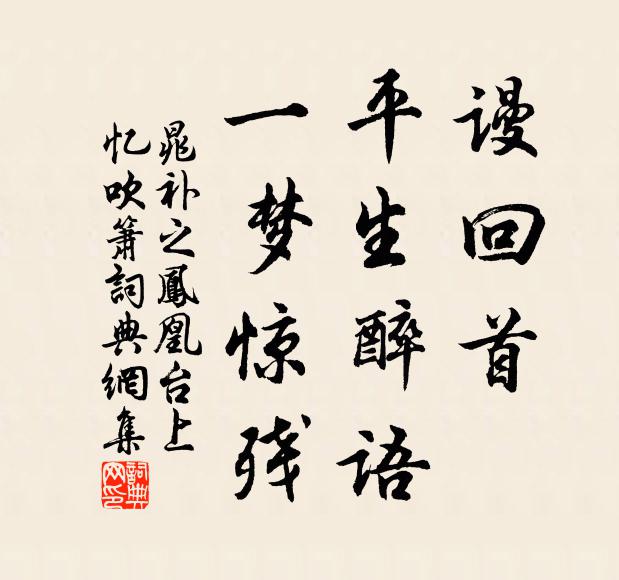 谩回首
平生醉语
一梦惊残
晁补之鳳凰台上
忆吹箫詞典網集
詞典网印